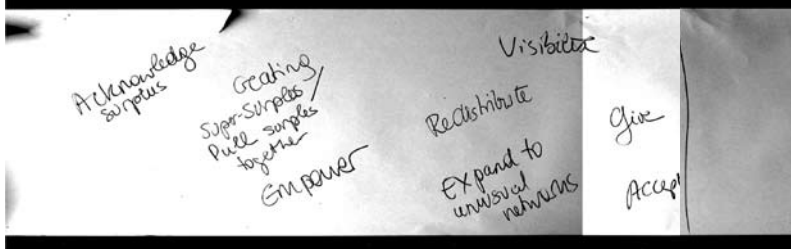 Acknowledge
surplus
Creating
Super-Surplus/
Pull surplus
together
Empower
Visibilize
Redistribute
Expand to
unusual
networks
Give
Accept